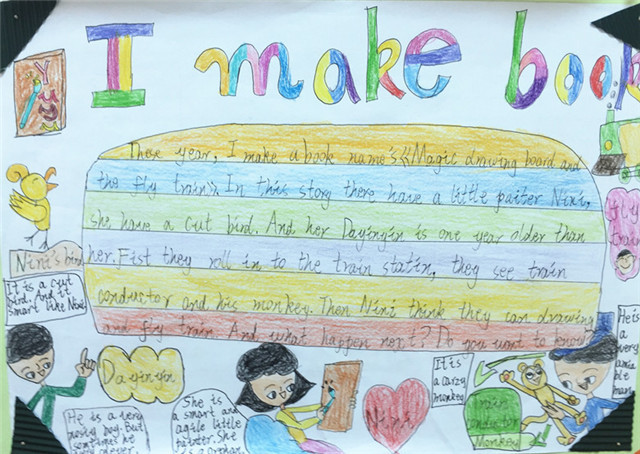 I make book
These year, I make a book name's《Magic drawing board and
the fly train》. In this story there have a little paiter Nini,
she have a cut bird. And her Dayinyin is one year older than
her. Fist they roll in to the train statin, they see train
conductor and his monkey. Then Nini think they can drawing
and fly train. And what happen next? Do you want to know?
Nini's bird
It is a cut
bird. And it
smart like Nini
Dayinyin
He is a very
nosty boy. But
sometimes he
very clever.
She is
a smart and
agile little
painter. She
is a orphan.
Nini
It is
a carzy
monkey
Train
conductor
Monkey
He is
a
very
amia
ble
man
fly
train